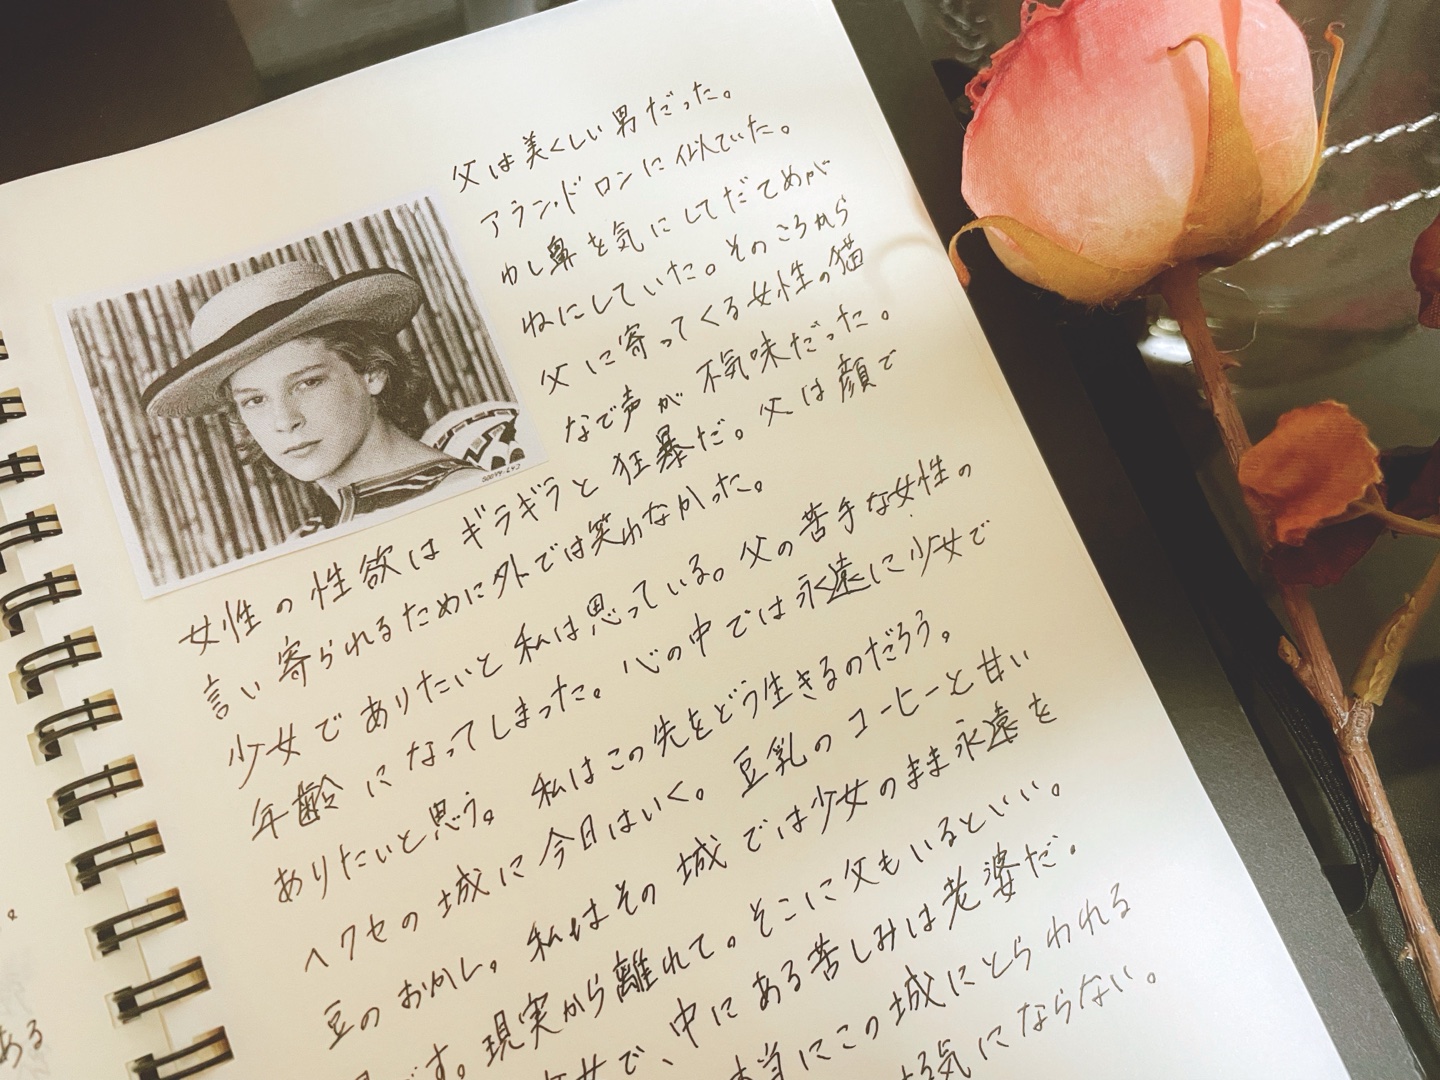 父は美くしい男だった。
アラン・ドロンに似ていた。
わし鼻を気にしてだてめが
ねにしていた。そのころから
父に寄ってくる女性の猫
なで声が不気味だった。
女性の性欲はギラギラと狂暴だ。父は顔で
言い寄られるために外では笑わなかった。
少女でありたいと私は思っている。父の苦手な女性の
年齢になってしまった。心の中では永遠に少女で
ありたいと思う。私はこの先をどう生きるのだろう。
ヘクセの城に今日はいく。豆乳のコーヒーと甘い
豆のおかし。私はその城では少女のまま永遠を
す。現実から離れて。そこに父もいるといい。
女で、中にある苦しみは老婆だ。
当にこの城にとらわれる
気にならない。
ある